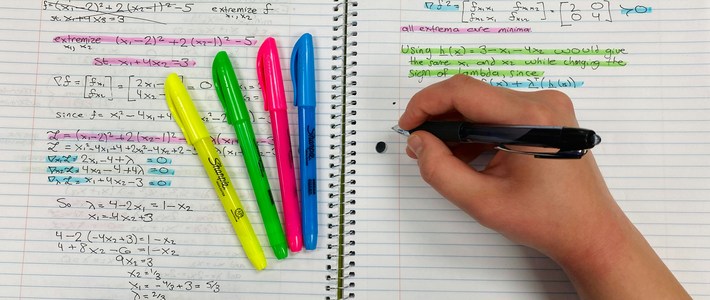 f=(x₁-2)²+2(x₂-1)²-5 extremize f
x₁+4x₂=3 x₁,x₂
extremize (x₁-2)²+2(x₂-1)²-5
x₁,x₂
st. x₁+4x₂=3
∇f = [fx₁ fx₂] = [2x₁- 4x₂ = 0
since f=x₁²-4x₁+4
L = (x₁-2)²+2(x₂-1)²
L = x₁²-4x₁+4+2x₂²
2x₁-4+λ =0
4x₂-4+4λ =0
x₁+4x₂-3 =0
So λ=4-2x₁=1-x₂
x₁=-4x₂+3
4-2(-4x₂+3)=1-x₂
4+8x₂-6=1-x₂
9x₂=3
x₂=1/3
x₁=-4/3+3=5/3
λ=2/3
Sharpie
Sharpie
Sharpie
∇²f = [fx₁x₁ fx₁x₂ = [2 0
fx₂x₁ fx₂x₂] 0 4] >0
all extrema are minima.
Using h(x)=3-x₁-4x₂ would give
the same x₁ and x₂ while changing the
sign of lambda, since
f(x)+λᵀ(h(x))